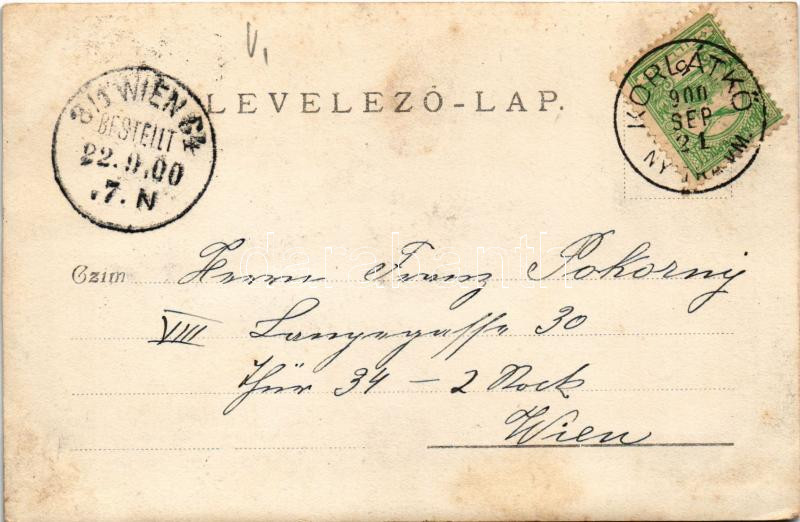 V.
LEVELEZŐ-LAP.
8/1 WIEN 64
BESTELLT
22.9.00
.7.N
KORLÁTKŐ
900
SEP
21
NYITRA VM.
Czim
Herrn Franz Pokorny
VIII Langegasse 30
Thür 34 – 2 Stock
Wien
darabanth